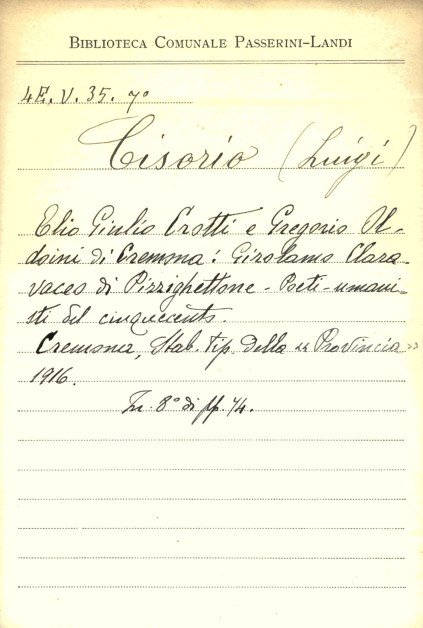 BIBLIOTECA COMUNALE PASSERINI-LANDI
4E. V. 35. 7º
Cisorio (Luigi)
Elio Giulio Crotti e Gregorio Ol-
doini di Cremona: Girolamo Clara-
vaces di Pizzighettone - Poeti-umani-
sti del cinquecento.
Cremona, Stab. Tip. della « Provincia »
1916.
In. 8º di pp. 74.